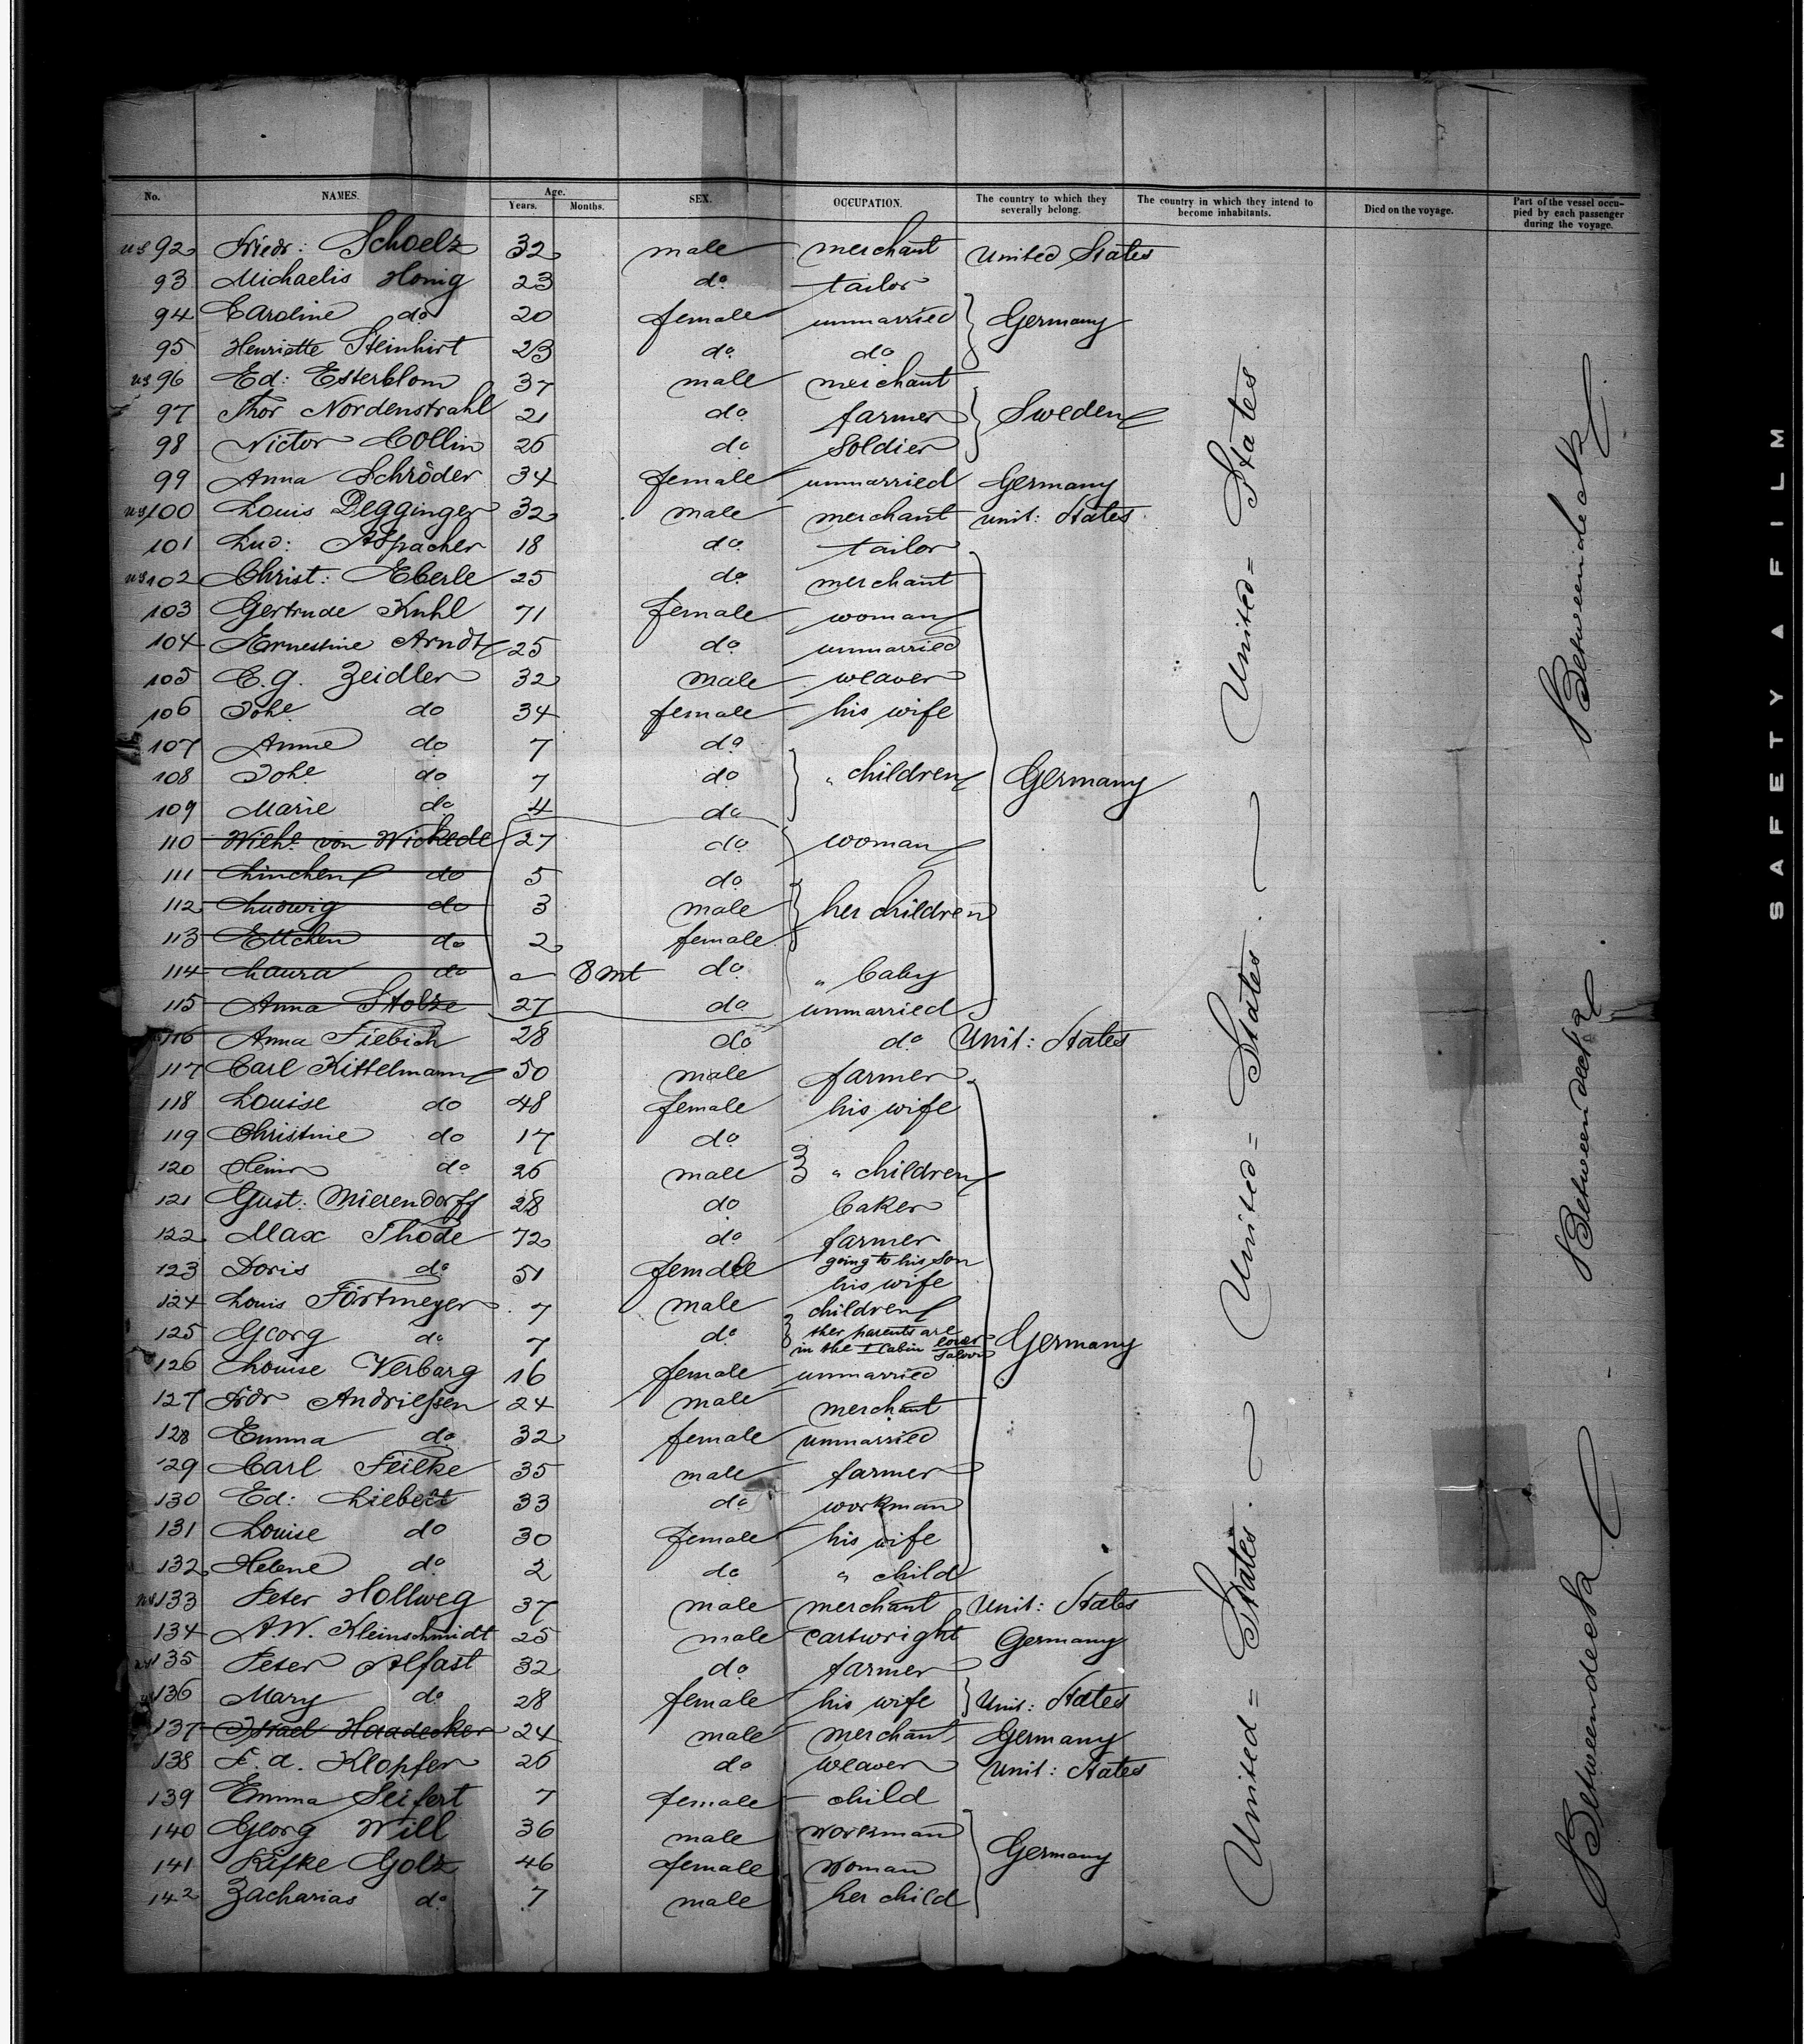 No. NAMES. Age. Years. Months. SEX. OCCUPATION. The country to which they severally belong. The country in which they intend to become inhabitants. Died on the voyage. Part of the vessel occupied by each passenger during the voyage.
us 92 Friedr: Schoelz 32 male merchant United States
93 Michaelis Honig 23 do tailor
94 Caroline do 20 female unmarried Germany
95 Henriette Steinhirt 23 do do
us 96 Ed: Esterblom 37 male merchant
97 Thor Nordenstrahl 21 do farmer Sweden
98 Victor Collin 26 do soldier
99 Anna Schröder 34 female unmarried Germany
us 100 Louis Degginger 32 male merchant Unit: States
101 Lud: Aspacher 18 do tailor
us 102 Christ: Eberle 25 do merchant
103 Gertrude Kuhl 71 female woman
104 Ernestine Arndt 25 do unmarried
105 C. G. Zeidler 32 male weaver
106 Johe do 34 female his wife
107 Anna do 7 do
108 Johe do 7 do " children Germany
109 Marie do 4 do
110 Wilhe von Wickede 27 do woman
111 Linchen do 5 do
112 Ludwig do 3 male her children
113 Ettchen do 2 female
114 Laura do 8 mt do " baby
115 Anna Stolze 27 do unmarried
116 Anna Fiebich 28 do do Unit: States
117 Carl Kittelmann 50 male farmer
118 Louise do 48 female his wife
119 Christine do 17 do
120 Heinr do 26 male " children
121 Gust: Mierendorff 28 do baker
122 Max Thode 72 do farmer
going to his son
123 Doris do 51 female his wife
124 Louis Förtmeyer 7 male children
125 Georg do 7 do ther parents are
in the 1 Cabin saloon Germany
126 Louise Verbarg 16 female unmarried
127 Frdr Andrießen 24 male merchant
128 Emma do 32 female unmarried
129 Carl Feilke 35 male farmer
130 Ed: Liebert 33 do workman
131 Louise do 30 female his wife
132 Helene do 2 do " child
us 133 Peter Hollweg 37 male merchant Unit: States
134 A W. Kleinschmidt 25 male cartwright Germany
us 135 Peter Alfast 32 do farmer
us 136 Mary do 28 female his wife Unit: States
137 Israel Haadecker 24 male merchant Germany
138 F. A. Klopfer 26 do weaver Unit: States
139 Emma Seifert 7 female child
140 Georg Will 36 male workman Germany
141 Rifke Golz 46 female woman
142 Zacharias do 7 male her child
United = States
United = States
United = States
Betweendeck
Betweendeck
Betweendeck
SAFETY A FILM